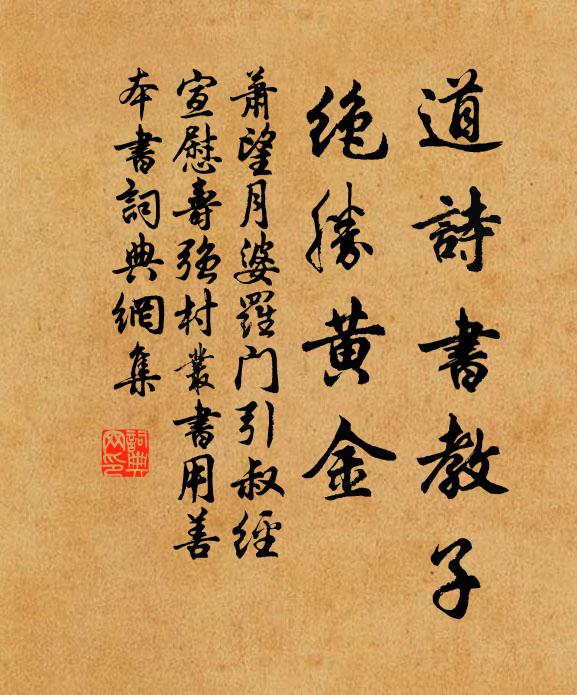 道詩書教子
絶勝黄金
蕭望月婆羅门引叔經
宣慰壽強村叢書用善
本書詞典網集
詞典网印